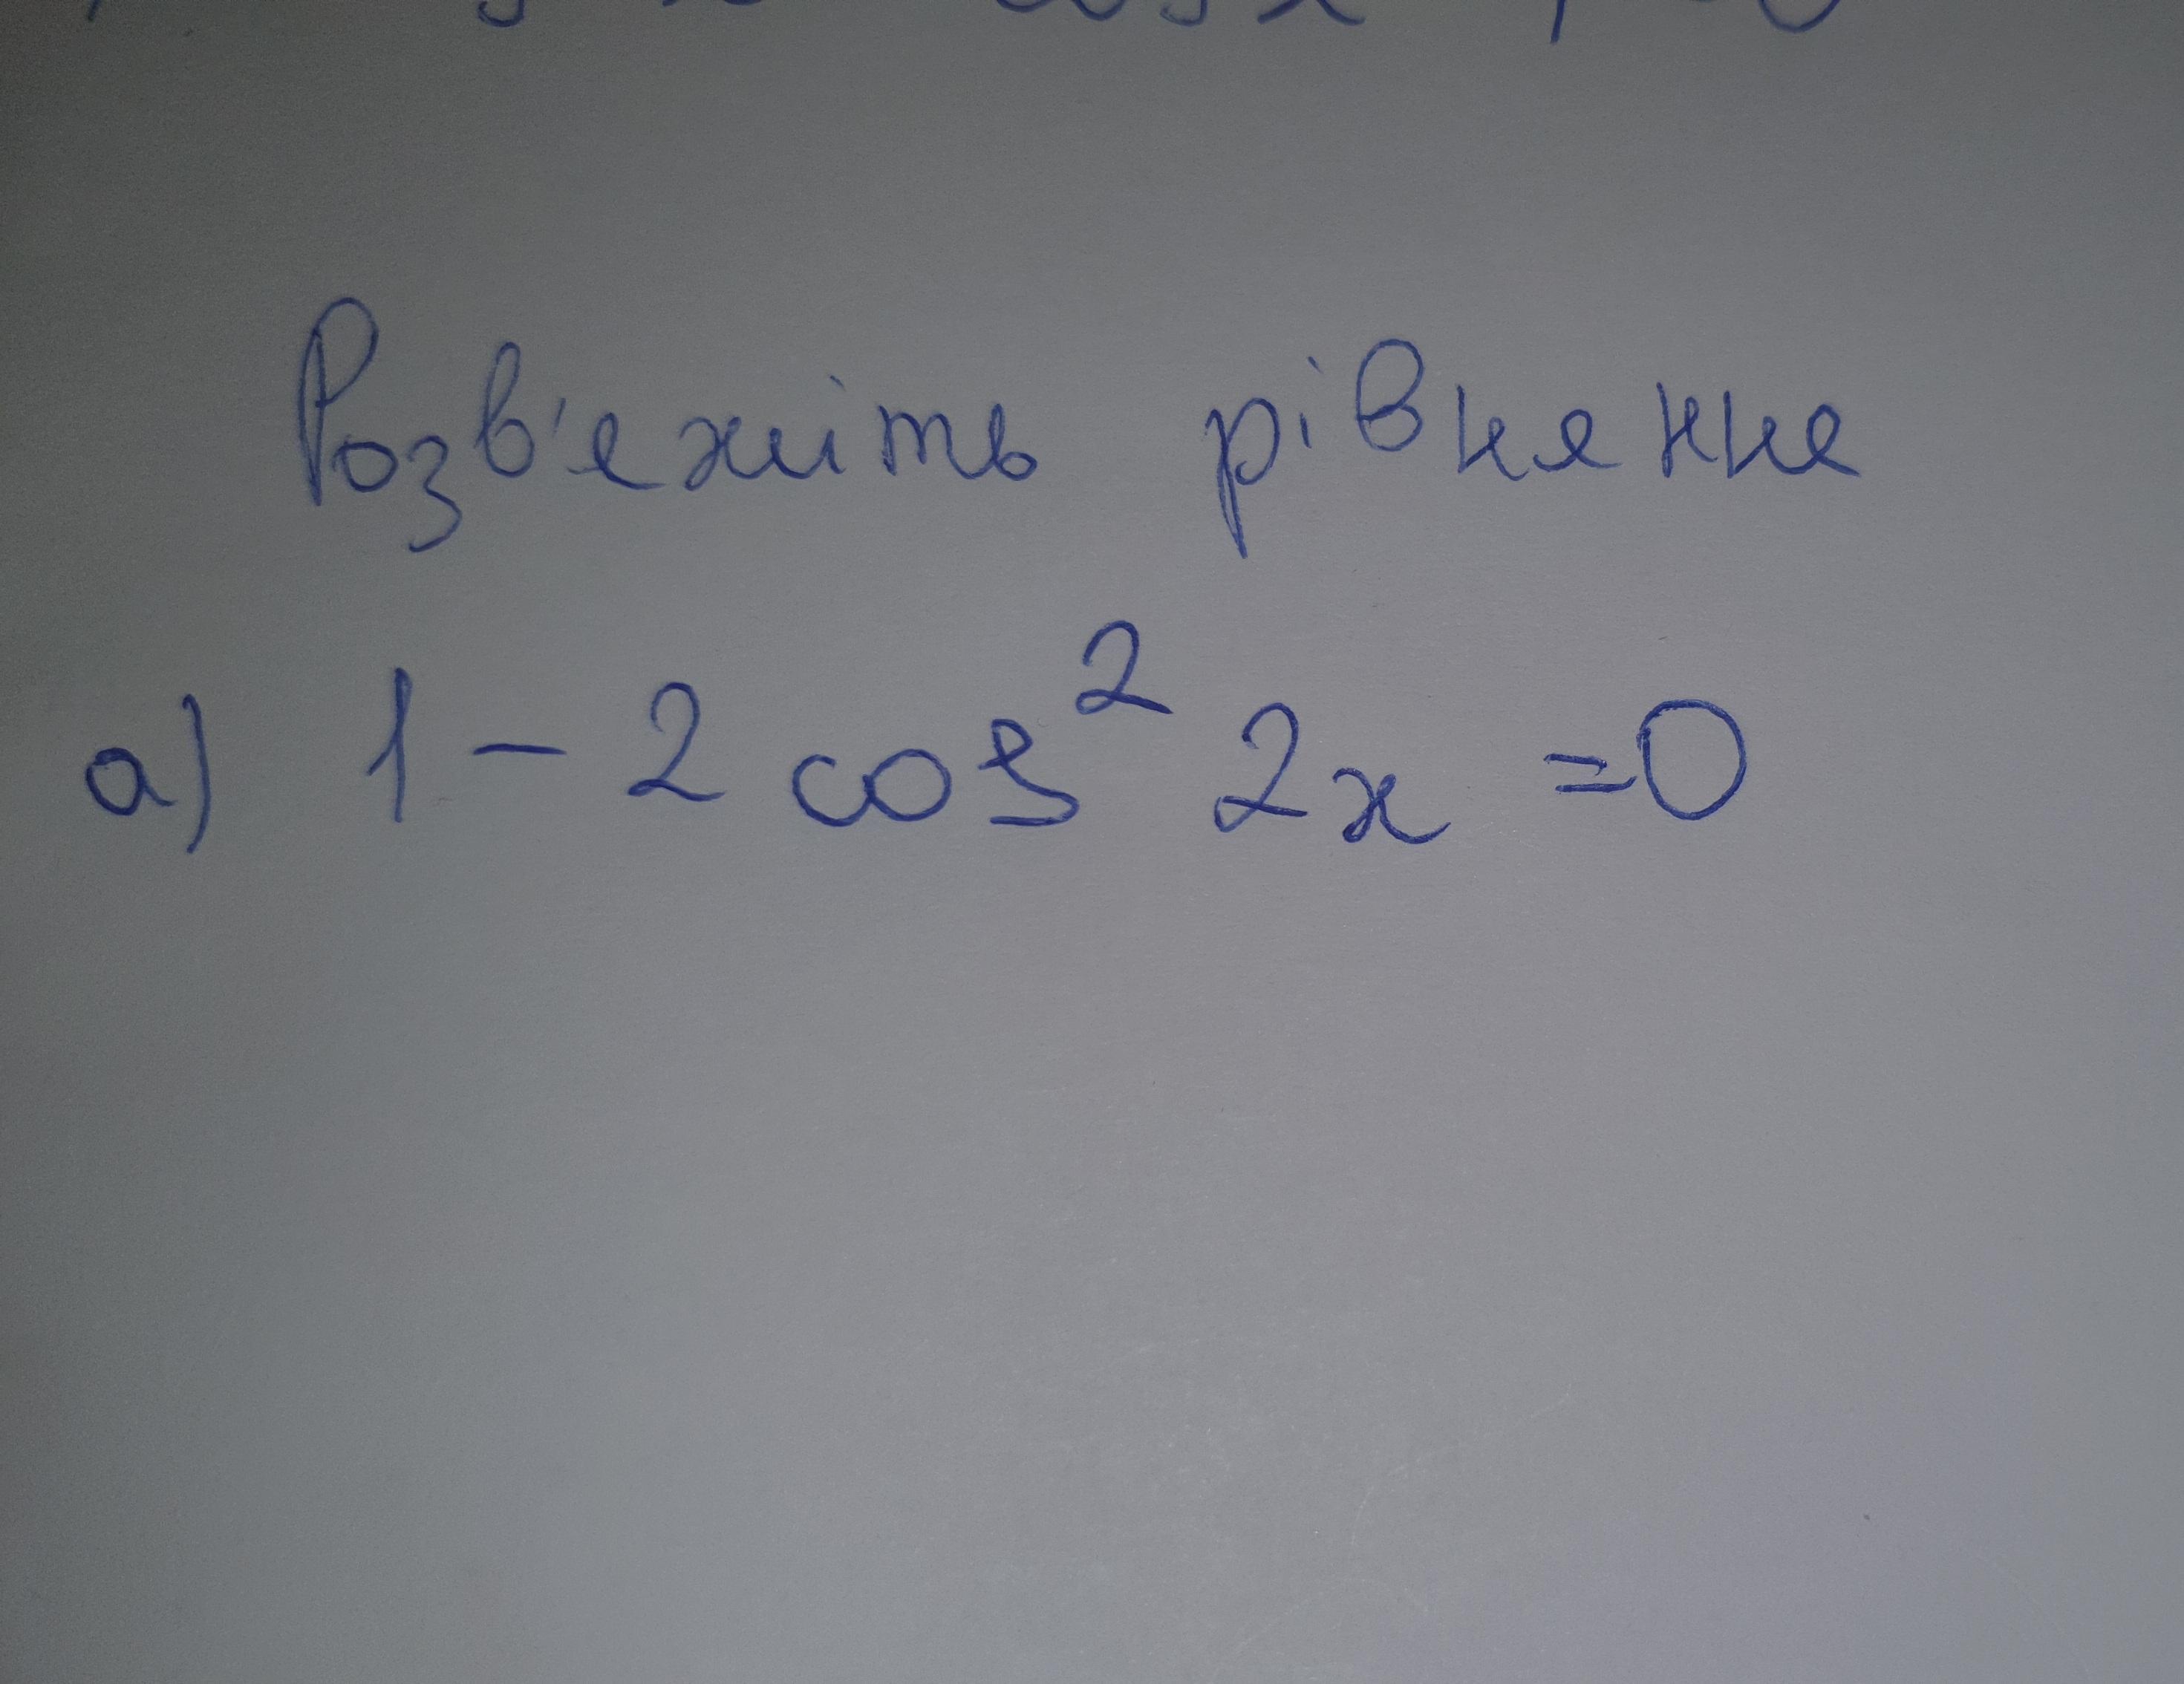 Розв'яжіть рівняння
а) 1 - 2 cos² 2x = 0